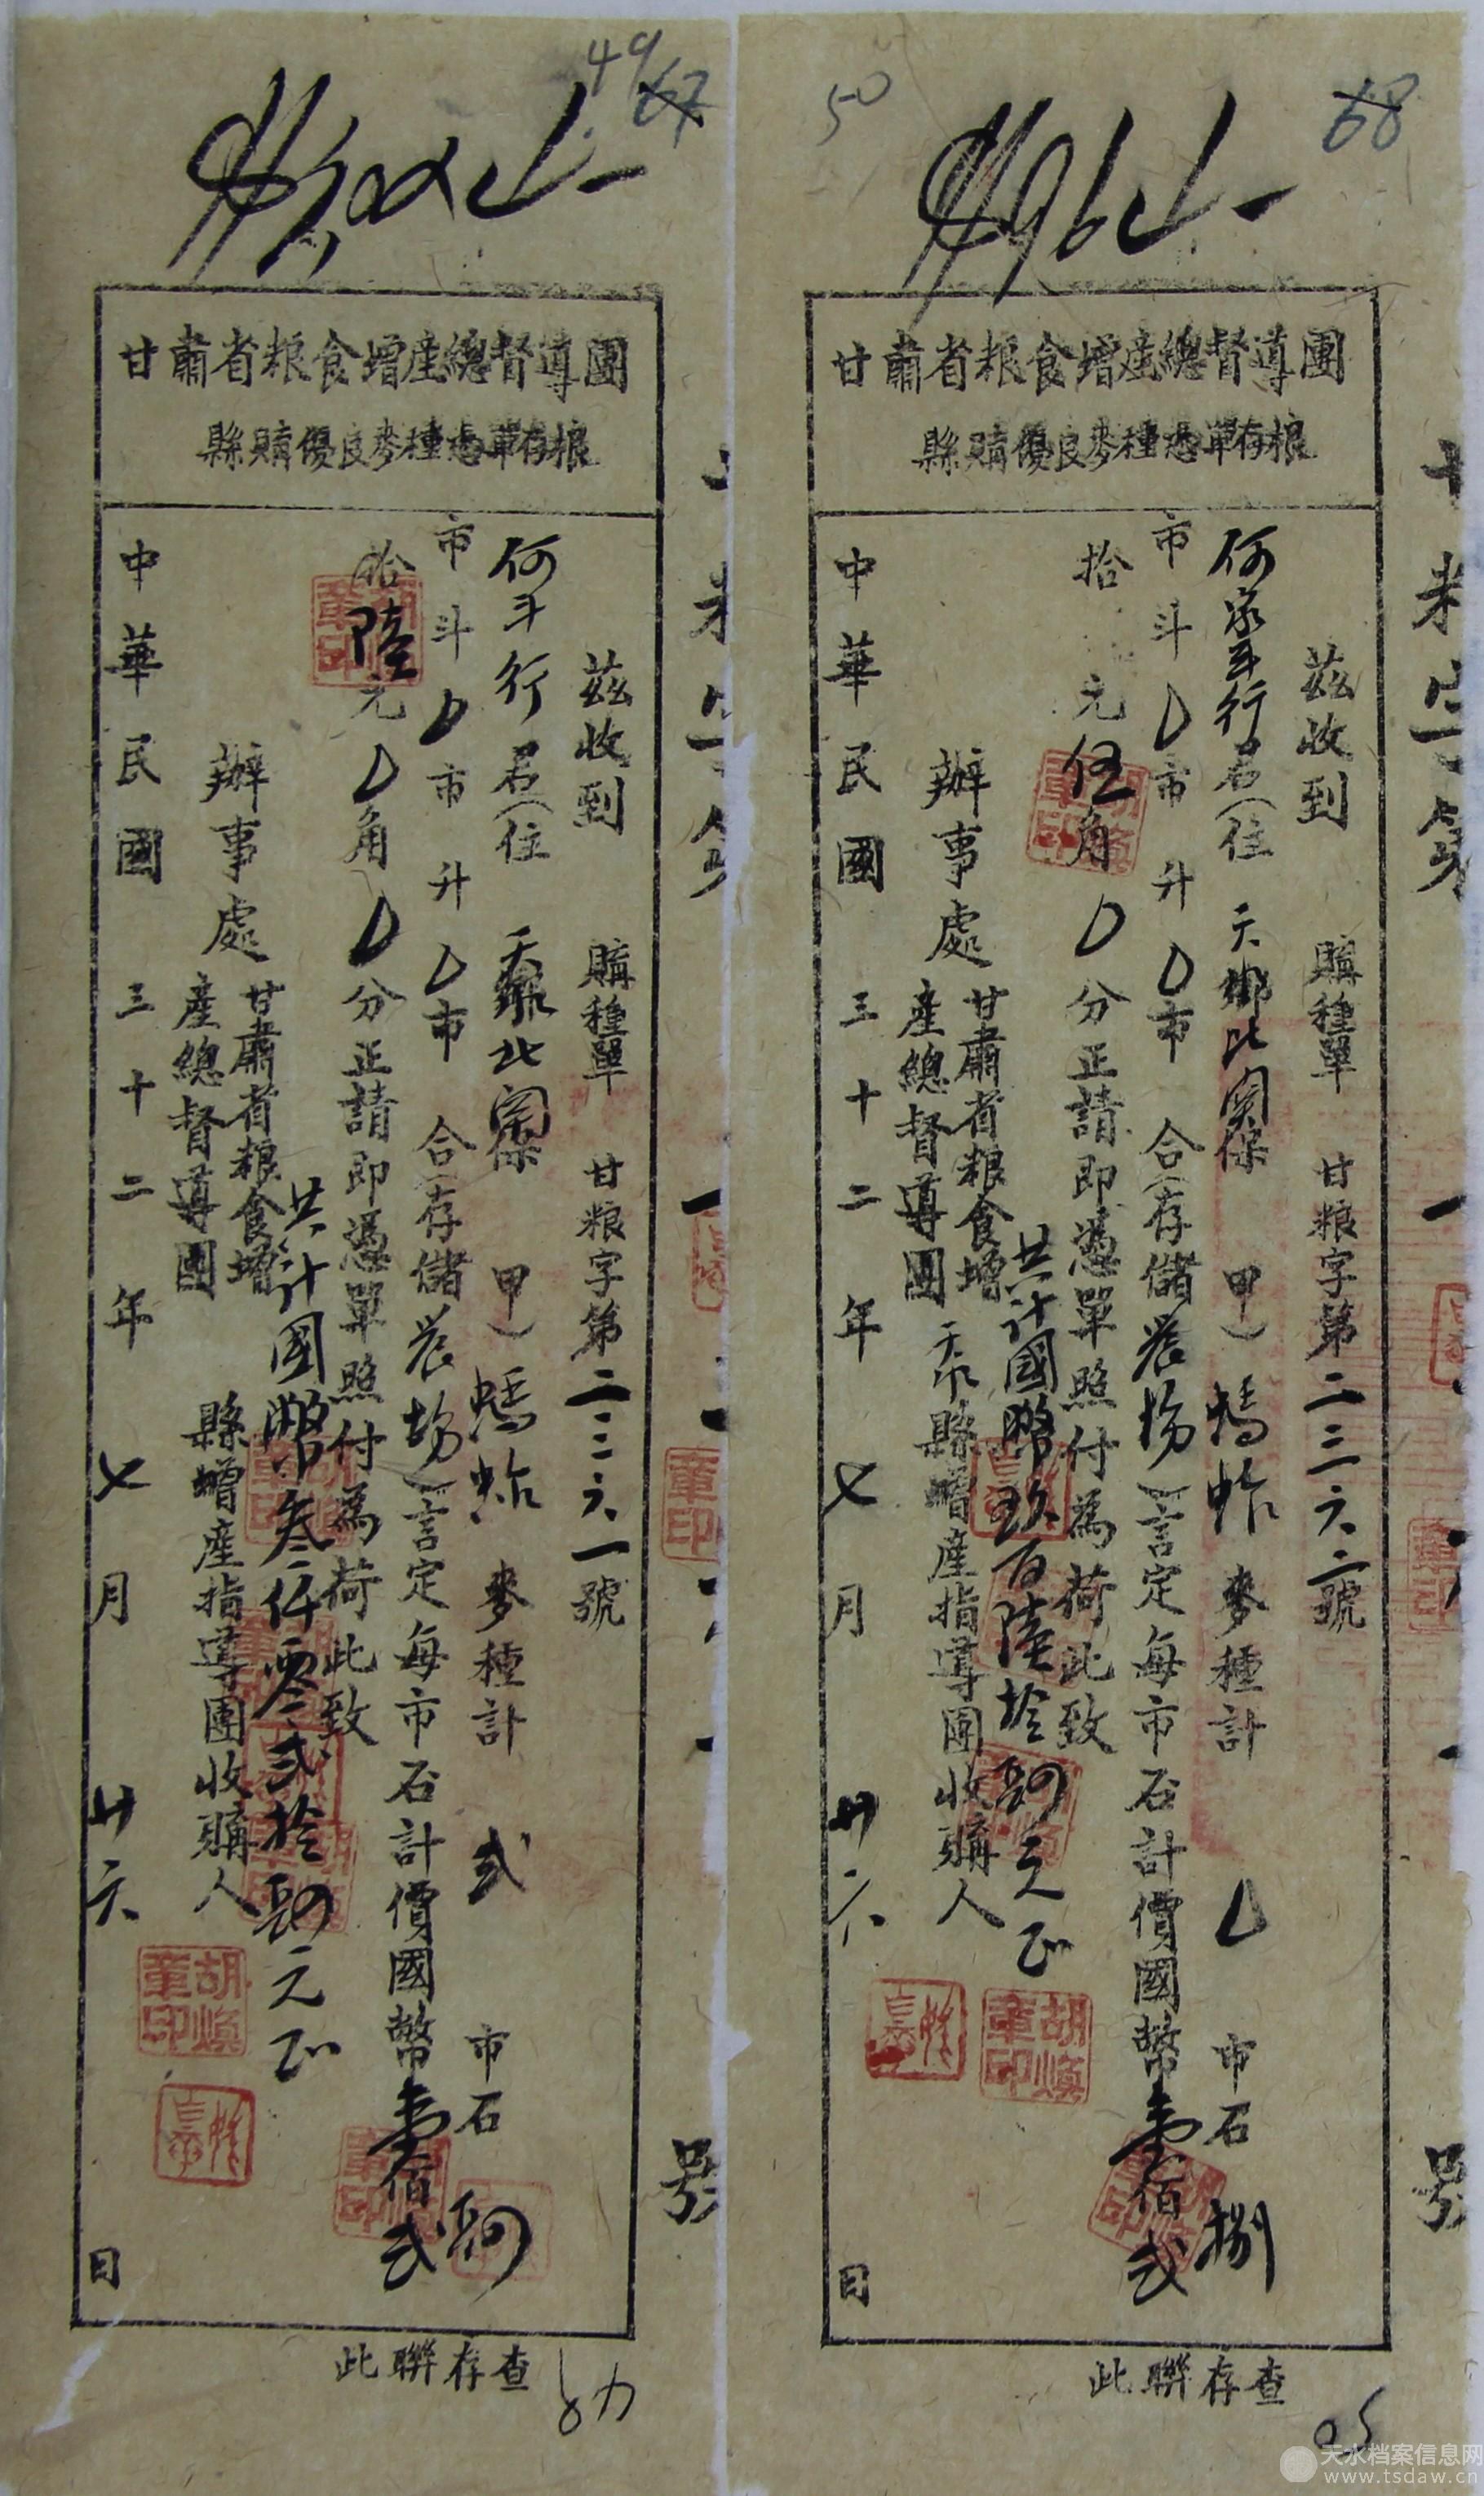 49
67
甘肅省粮食增産總督導團
縣購優良麥種憑單存根
購種單 甘粮字第二三六一號
茲收到
何斗行 君(住 天水北関保 甲)螞蚱 麥種計 弐 市石
市斗 0 市升 0 市 合(存儲農場)言定每市石計價國幣壹佰弐
拾陸元 0 角 0 分正請即憑單照付為荷此致
共計國幣叁仟零弐拾 元正
甘肅省粮食增
産總督導團
辦事處
縣增産指導團收購人
胡煥章印
中華民國三十二年七月廿六日
此聯存查
50
68
甘肅省粮食增産總督導團
縣購優良麥種憑單存根
購種單 甘粮字第二三六二號
茲收到
何家斗行 君(住 天 北関保 甲)螞蚱 麥種計 0 市石 捌
市斗 0 市升 0 市 合(存儲農場)言定每市石計價國幣壹佰弐
拾 元 伍角 0 分正請即憑單照付為荷此致
共計國幣玖百陸拾 元正
甘肅省粮食增
産總督導團
辦事處
天水縣增産指導團收購人
胡煥章印
中華民國三十二年七月廿六日
此聯存查
天水档案信息网
www.tsdaw.cn